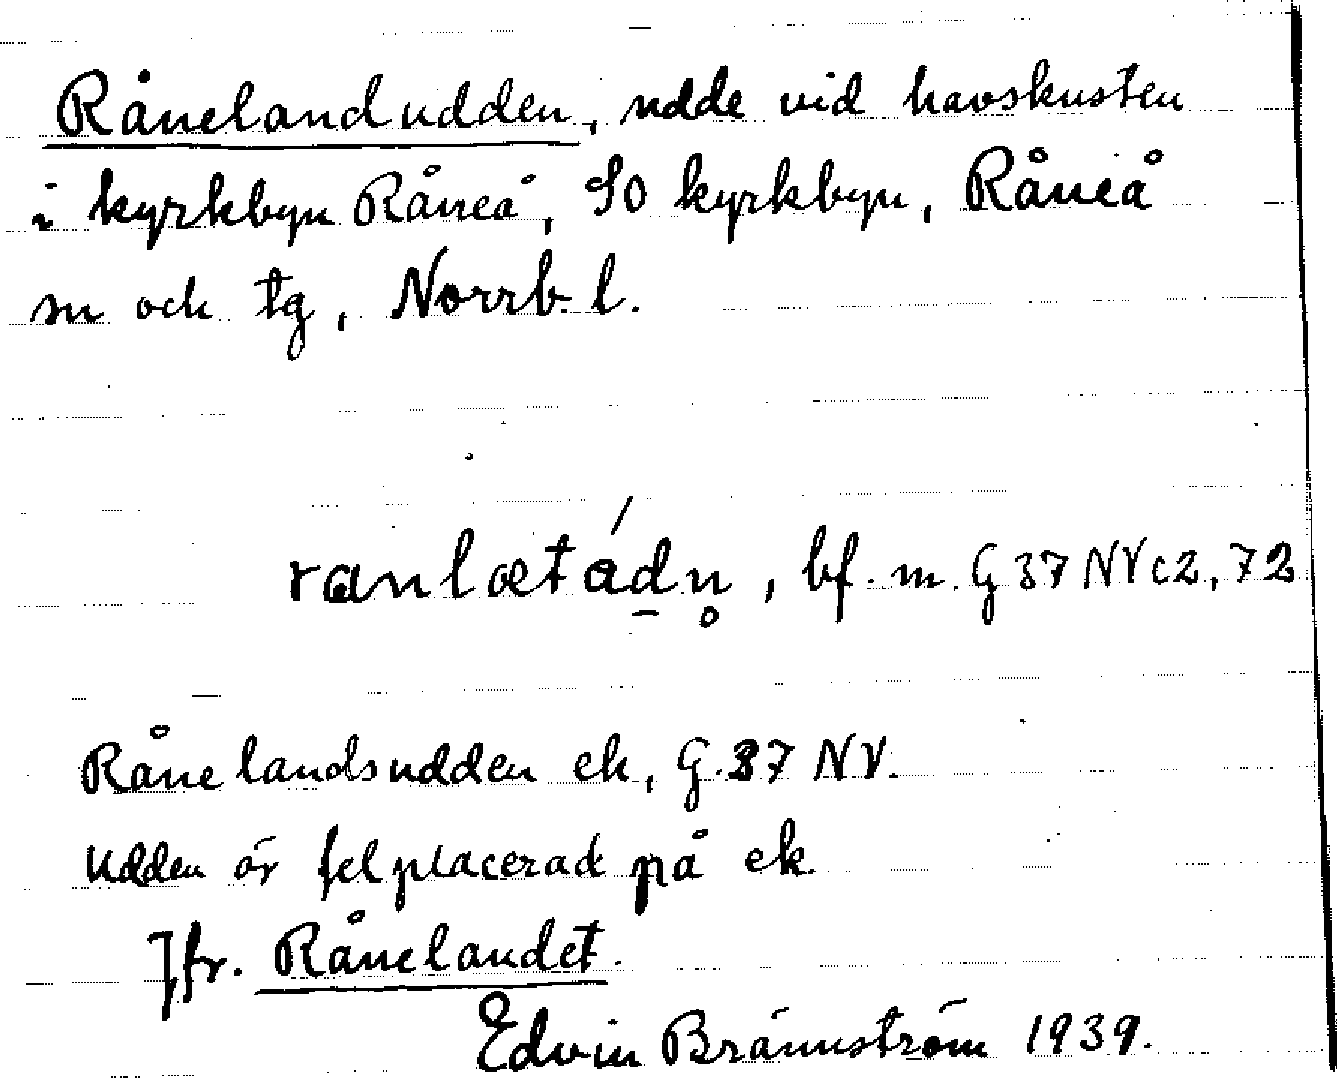 Rånelandudden, udde vid havskusten
i kyrkbyn Råneå, SO kyrkbyn, Råneå
sn och tg, Norrb. l.
ranlætádn̥, bf. m. G 37 NV c2, 72
Rånelandsudden ek, G. 37 NV.
Udden är felplacerad på ek.
Jfr. Rånelandet.
Edvin Brännström 1939.